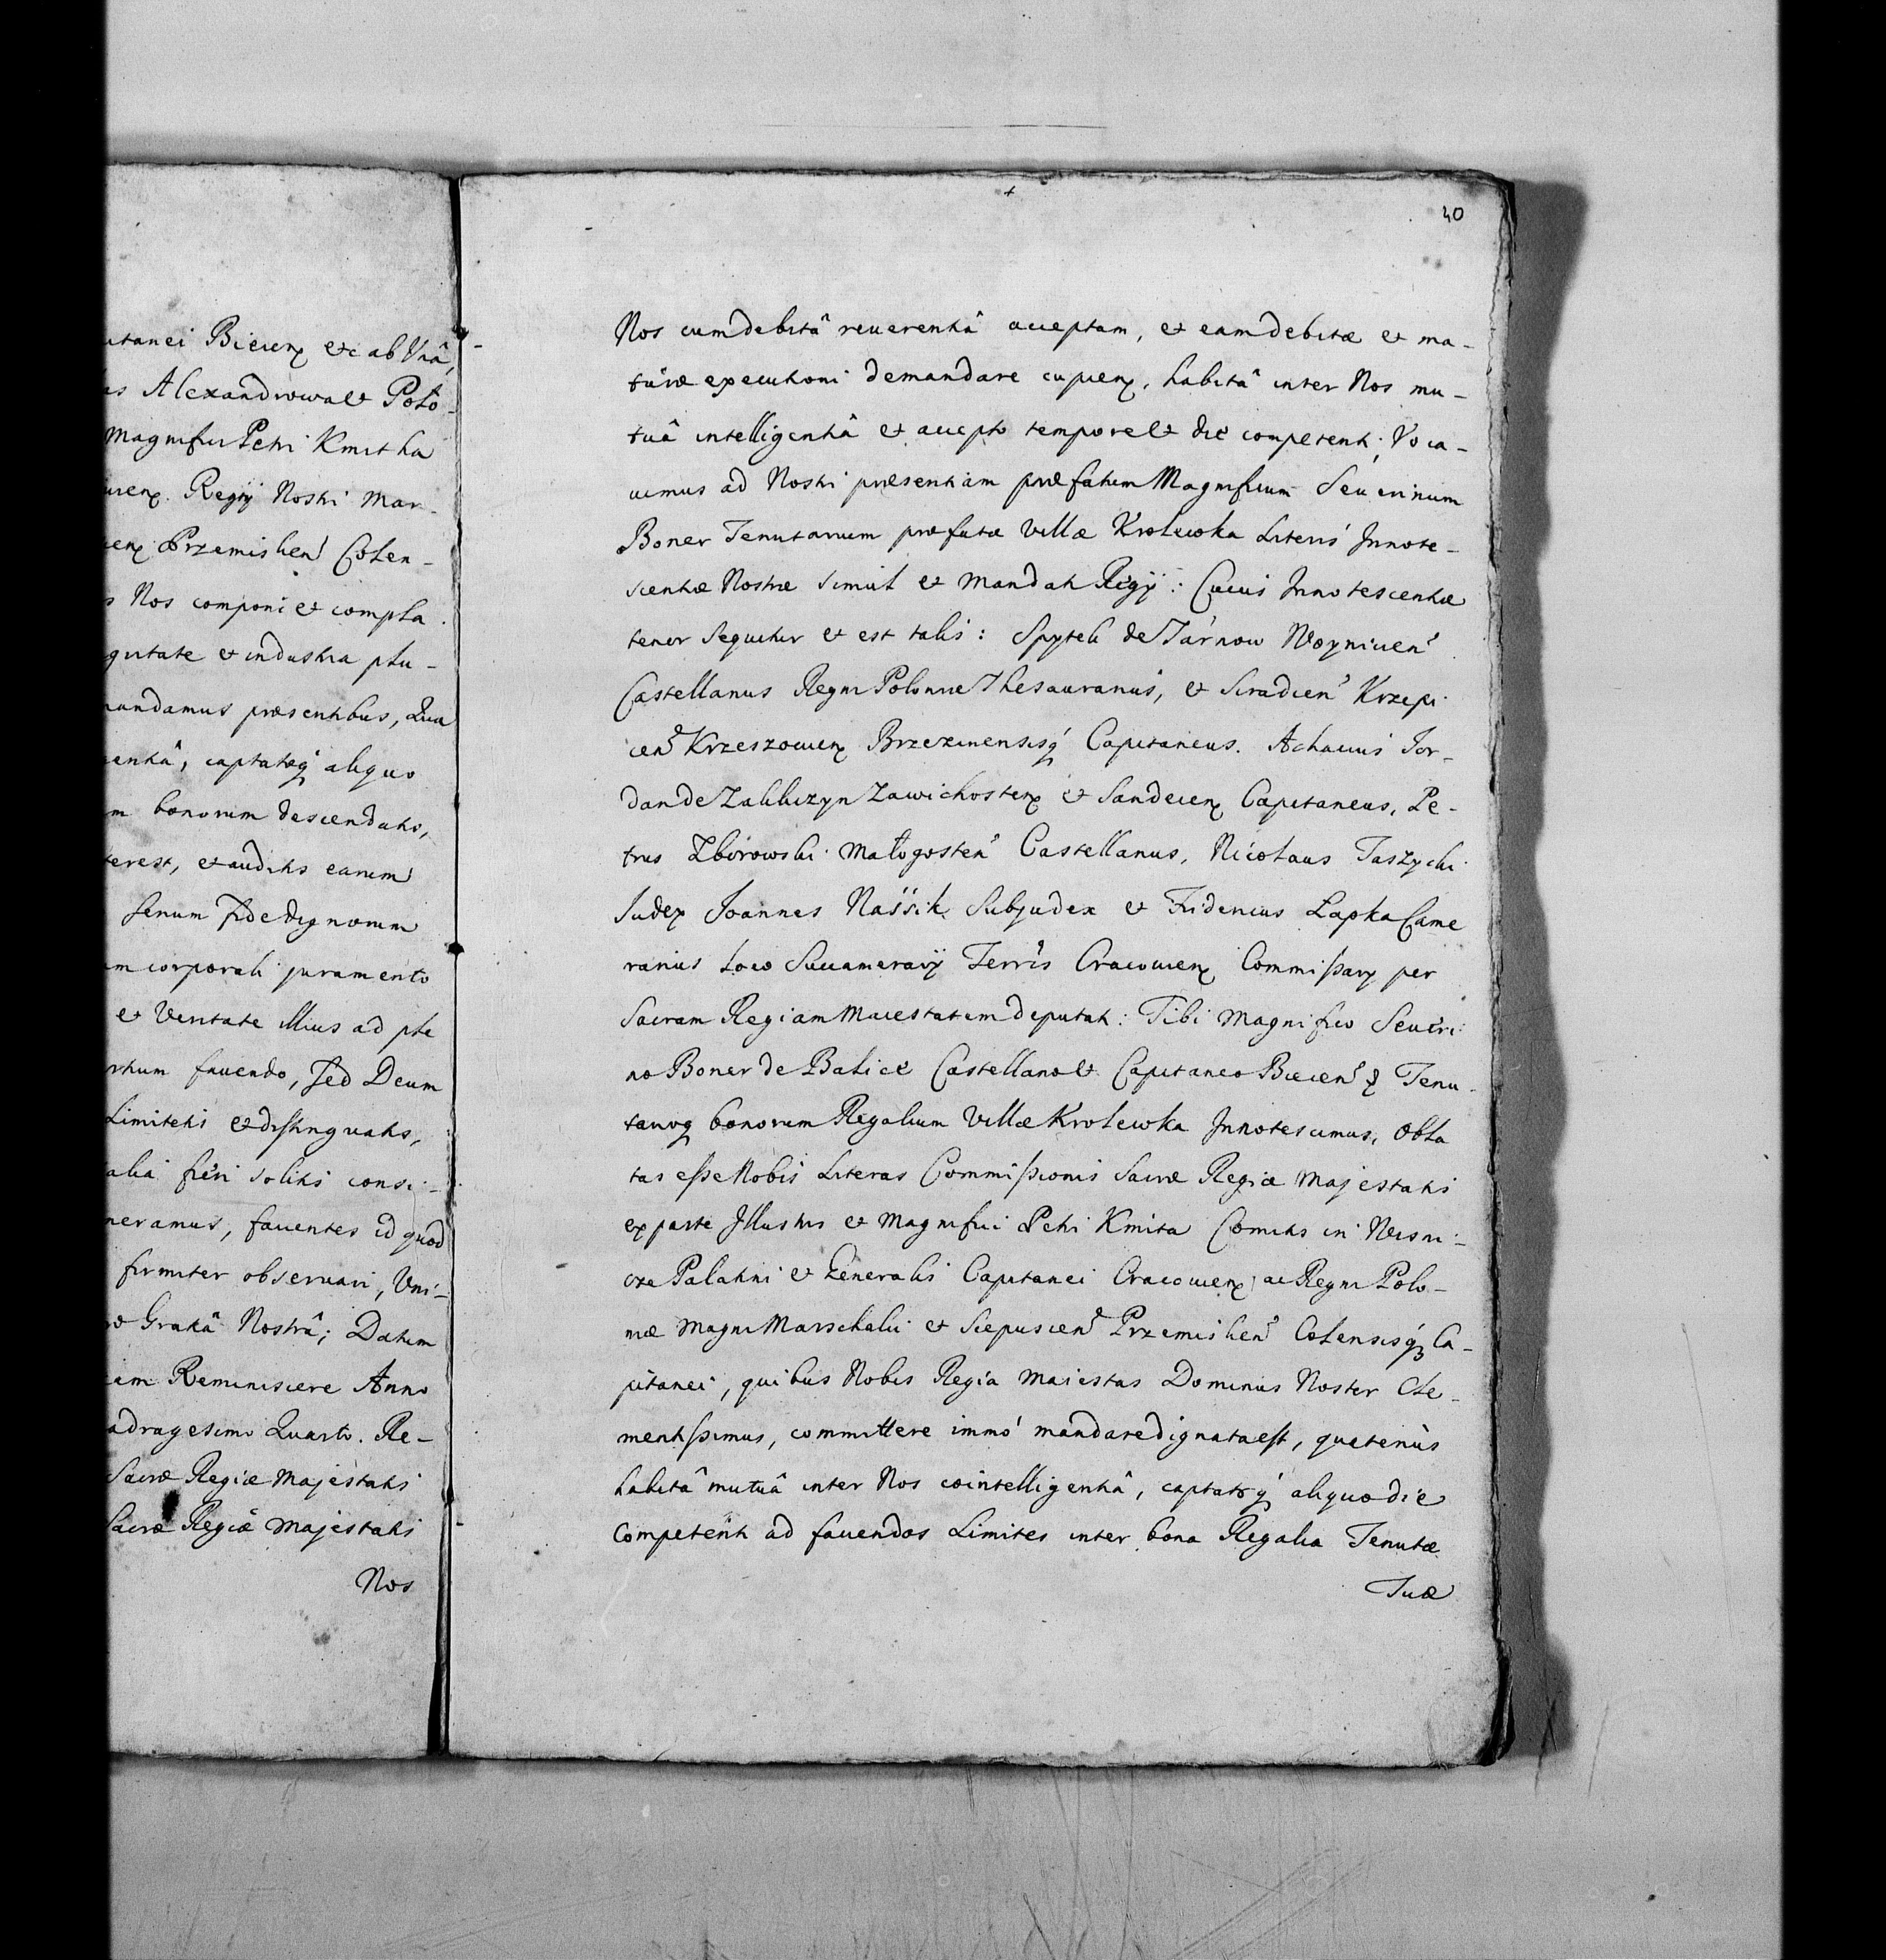 utanei Biecen et c ab Vnâ,
us Alexandrowa et Poło-
Magnifici Petri Kmitha
uien. Regij Nostri Mar-
uien. Przemislien Colen-
s Nos componi et compla
gritate et industria plu-
mandamus præsentibus, Qua
gentâ, captatoq aliquo
m bonorum descendatis,
terest, et auditis earum
Senum fide dignorum
um corporali juramento
et Veritate illius ad ple
rtium fauendo, Sed Deum
Limitetis et distinguatis,
alia fieri solitis consi-
neramus, fauentes id quod
firmiter obseruari, Vni-
ro Gratiâ Nostrâ; Datum
iam Reminiscere Anno
adragesimo Quarto. Re-
Sacræ Regiæ Majestatis
Sacræ Regiæ Majestatis
Nos
40
Nos cum debitâ reuerentiâ acceptam, et eam debitæ et ma-
turæ executioni demandare cupien, habitâ inter Nos mu-
tuâ intelligentiâ et accepto tempore et die competenti; Voca-
uimus ad Nostri præsentiam præfatum Magnificum Seuerinum
Boner Tenutarium præfatæ Villæ Krolewka Literis Innote-
scentiæ Nostræ simul et Mandati Regij: Cuius Innotescentiæ
tenor Sequitur et est talis: Spytek de Tarnow Woynicen
Castellanus Regni Poloniæ Thesaurarius, et Siradien Krzepi
cen Krzeszowien Brzezinensisq Capitaneus. Achacius Jor-
dan de Zakliczyn Zawichosten et Sandecen Capitaneus, Pe-
trus Zborowski Małogosten Castellanus, Nicolaus Taszycki
Judex Joannes Nassik Subjudex et Fridericus Łapka Came
rarius Loco Succamerarij Terris Cracouien Commissarij per
Sacram Regiam Maiestatem deputati: Tibi Magnifico Seueri
no Boner de Balice Castellano et Capitaneo Biecen & Tenu-
tarioq bonorum Regalium Villæ Krolewka Innotescimus, Obla
tas esse Nobis Literas Commissionis Sacræ Regiæ Majestatis
ex parte Illustris et Magnifici Petri Kmita Comitis in Wisni-
cze Palatini et Generalis Capitanei Cracouien ac Regni Polo-
niæ Magni Marschalci et Scepusien Przemislien Colensisq Ca-
pitanei, quibus Nobis Regia Maiestas Dominus Noster Cle-
mentissimus, committere immó mandare dignata est, quatenùs
habitâ mutuâ inter Nos cointelligentiâ, captatoq aliquo die
Competenti ad faciendos Limites inter bona Regalia Tenutæ
Tuæ